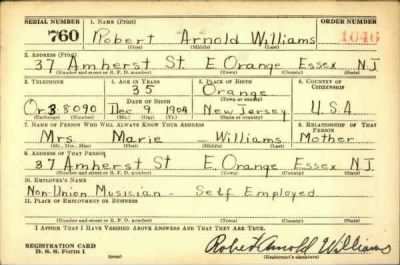 SERIAL NUMBER 1. NAME (Print) ORDER NUMBER
760 Robert Arnold Williams 1046
(First) (Middle) (Last)
2. ADDRESS (Print)
37 Amherst St E Orange Essex NJ
(Number and street or R. F. D. number) (Town) (County) (State)
3. TELEPHONE 4. AGE IN YEARS 5. PLACE OF BIRTH 6. COUNTRY OF CITIZENSHIP
35 Orange
DATE OF BIRTH (Town or county)
Or 3-8090 Dec 9 1904 New Jersey USA
(Exchange) (Number) (Mo.) (Day) (Yr.) (State or country)
7. NAME OF PERSON WHO WILL ALWAYS KNOW YOUR ADDRESS 8. RELATIONSHIP OF THAT PERSON
Mrs. Marie Williams Mother
(Mr., Mrs., Miss) (First) (Middle) (Last)
9. ADDRESS OF THAT PERSON
37 Amherst St E. Orange Essex NJ
(Number and street or R. F. D. number) (Town) (County) (State)
10. EMPLOYER'S NAME
Non-Union Musician - Self Employed
11. PLACE OF EMPLOYMENT OR BUSINESS
(Number and street or R. F. D. number) (Town) (County) (State)
I AFFIRM THAT I HAVE VERIFIED ABOVE ANSWERS AND THAT THEY ARE TRUE.
REGISTRATION CARD Robert Arnold Williams
D. S. S. Form 1 (over) (Registrant's signature)